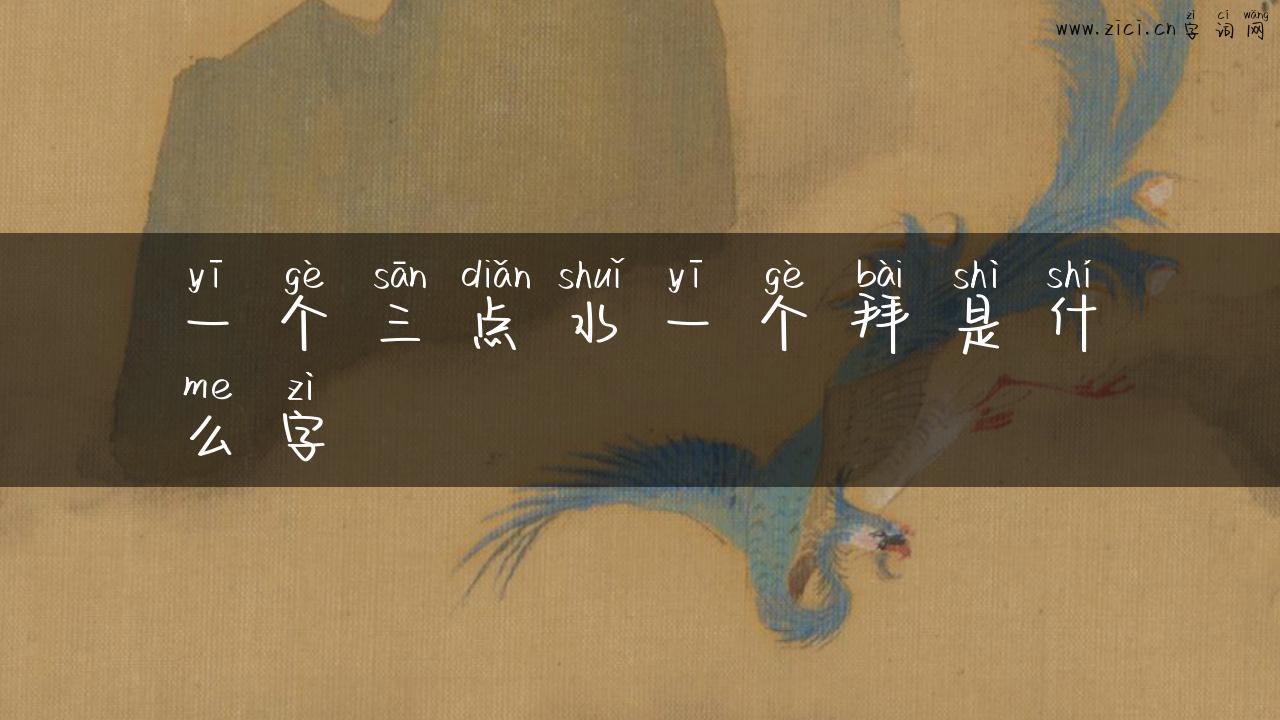 zì cí wǎng
www.zici.cn 字 词 网
yī gè sān diǎn shuǐ yī gè bài shì shí
一 个 三 点 水 一 个 拜 是 什
me zì
么 字